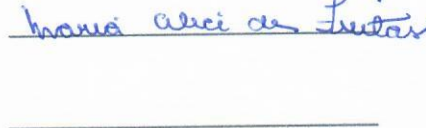 Maria Alice de Freitas